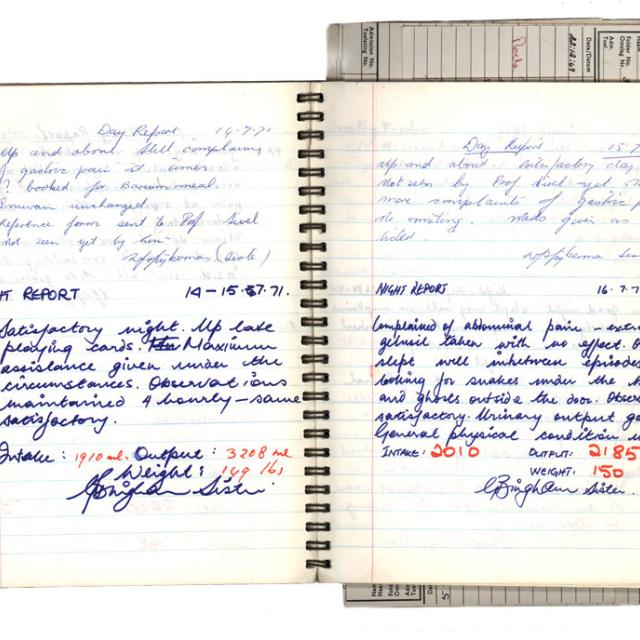 Day Report 14-7-71
Up and about still complaining
of gastric pain at times
? booked for Barium meal.
unchanged
Reference form sent to Prof
not seen yet by him
NIGHT REPORT 14-15-7.71.
Satisfactory night. Up late
playing cards. Maximum
assistance given under the
circumstances. Observations
maintained 4 hourly - same
satisfactory.
Intake: 1910 ml. Output: 3208 ml
Weight: 149 lbs
Bingham Sister
Day Report 15-7
Up and about satisfactory day
not seen by Prof yet
more complaints of gastric
No vomiting. Meds given as
NIGHT REPORT 16.7.7
Complained of abdominal pain - extra
gelusil taken with no effect.
slept well inbetween episodes
looking for snakes under the
and ghosts outside the door. Obser
satisfactory. Urinary output go
General physical condition
INTAKE: 2010 OUTPUT: 2185
WEIGHT: 150
Bingham Sister
Admission No.
Toelating No.
Date/Datum
Folder No.
Omslag Nr.